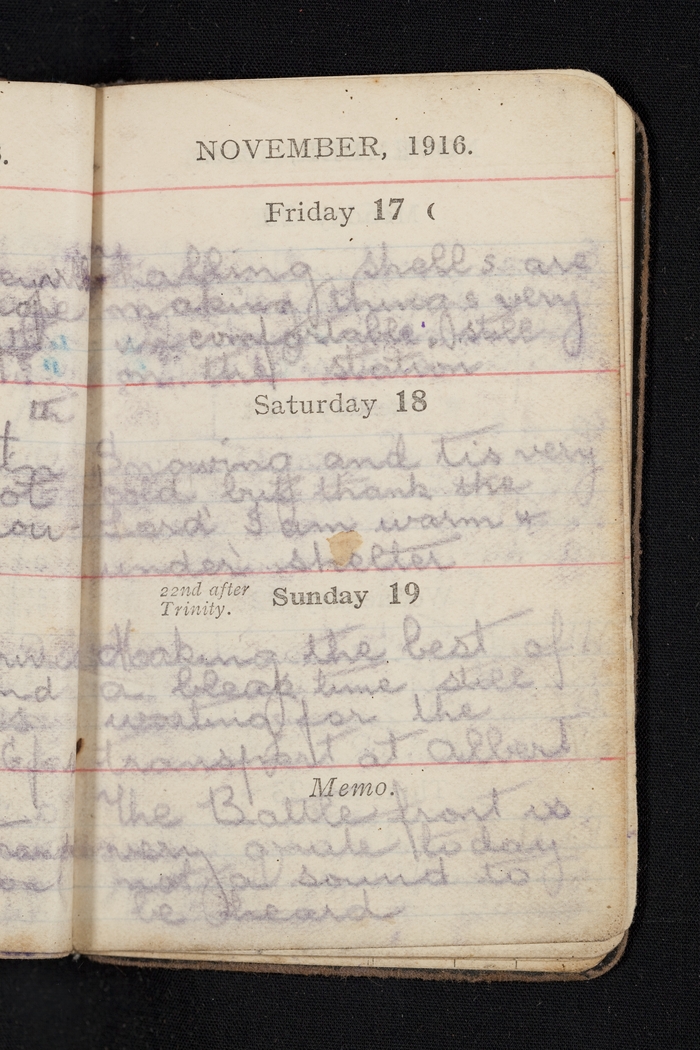 NOVEMBER, 1916.
Friday 17
Falling shells are
making things very
uncomfortable. still
on the station
Saturday 18
Snowing and tis very
cold but thank the
Lord I am warm &
under shelter
22nd after
Trinity.
Sunday 19
Making the best of
a bleak time still
waiting for the
transport at Albert
Memo.
The Battle front is
very quiate today
not a sound to
be heard